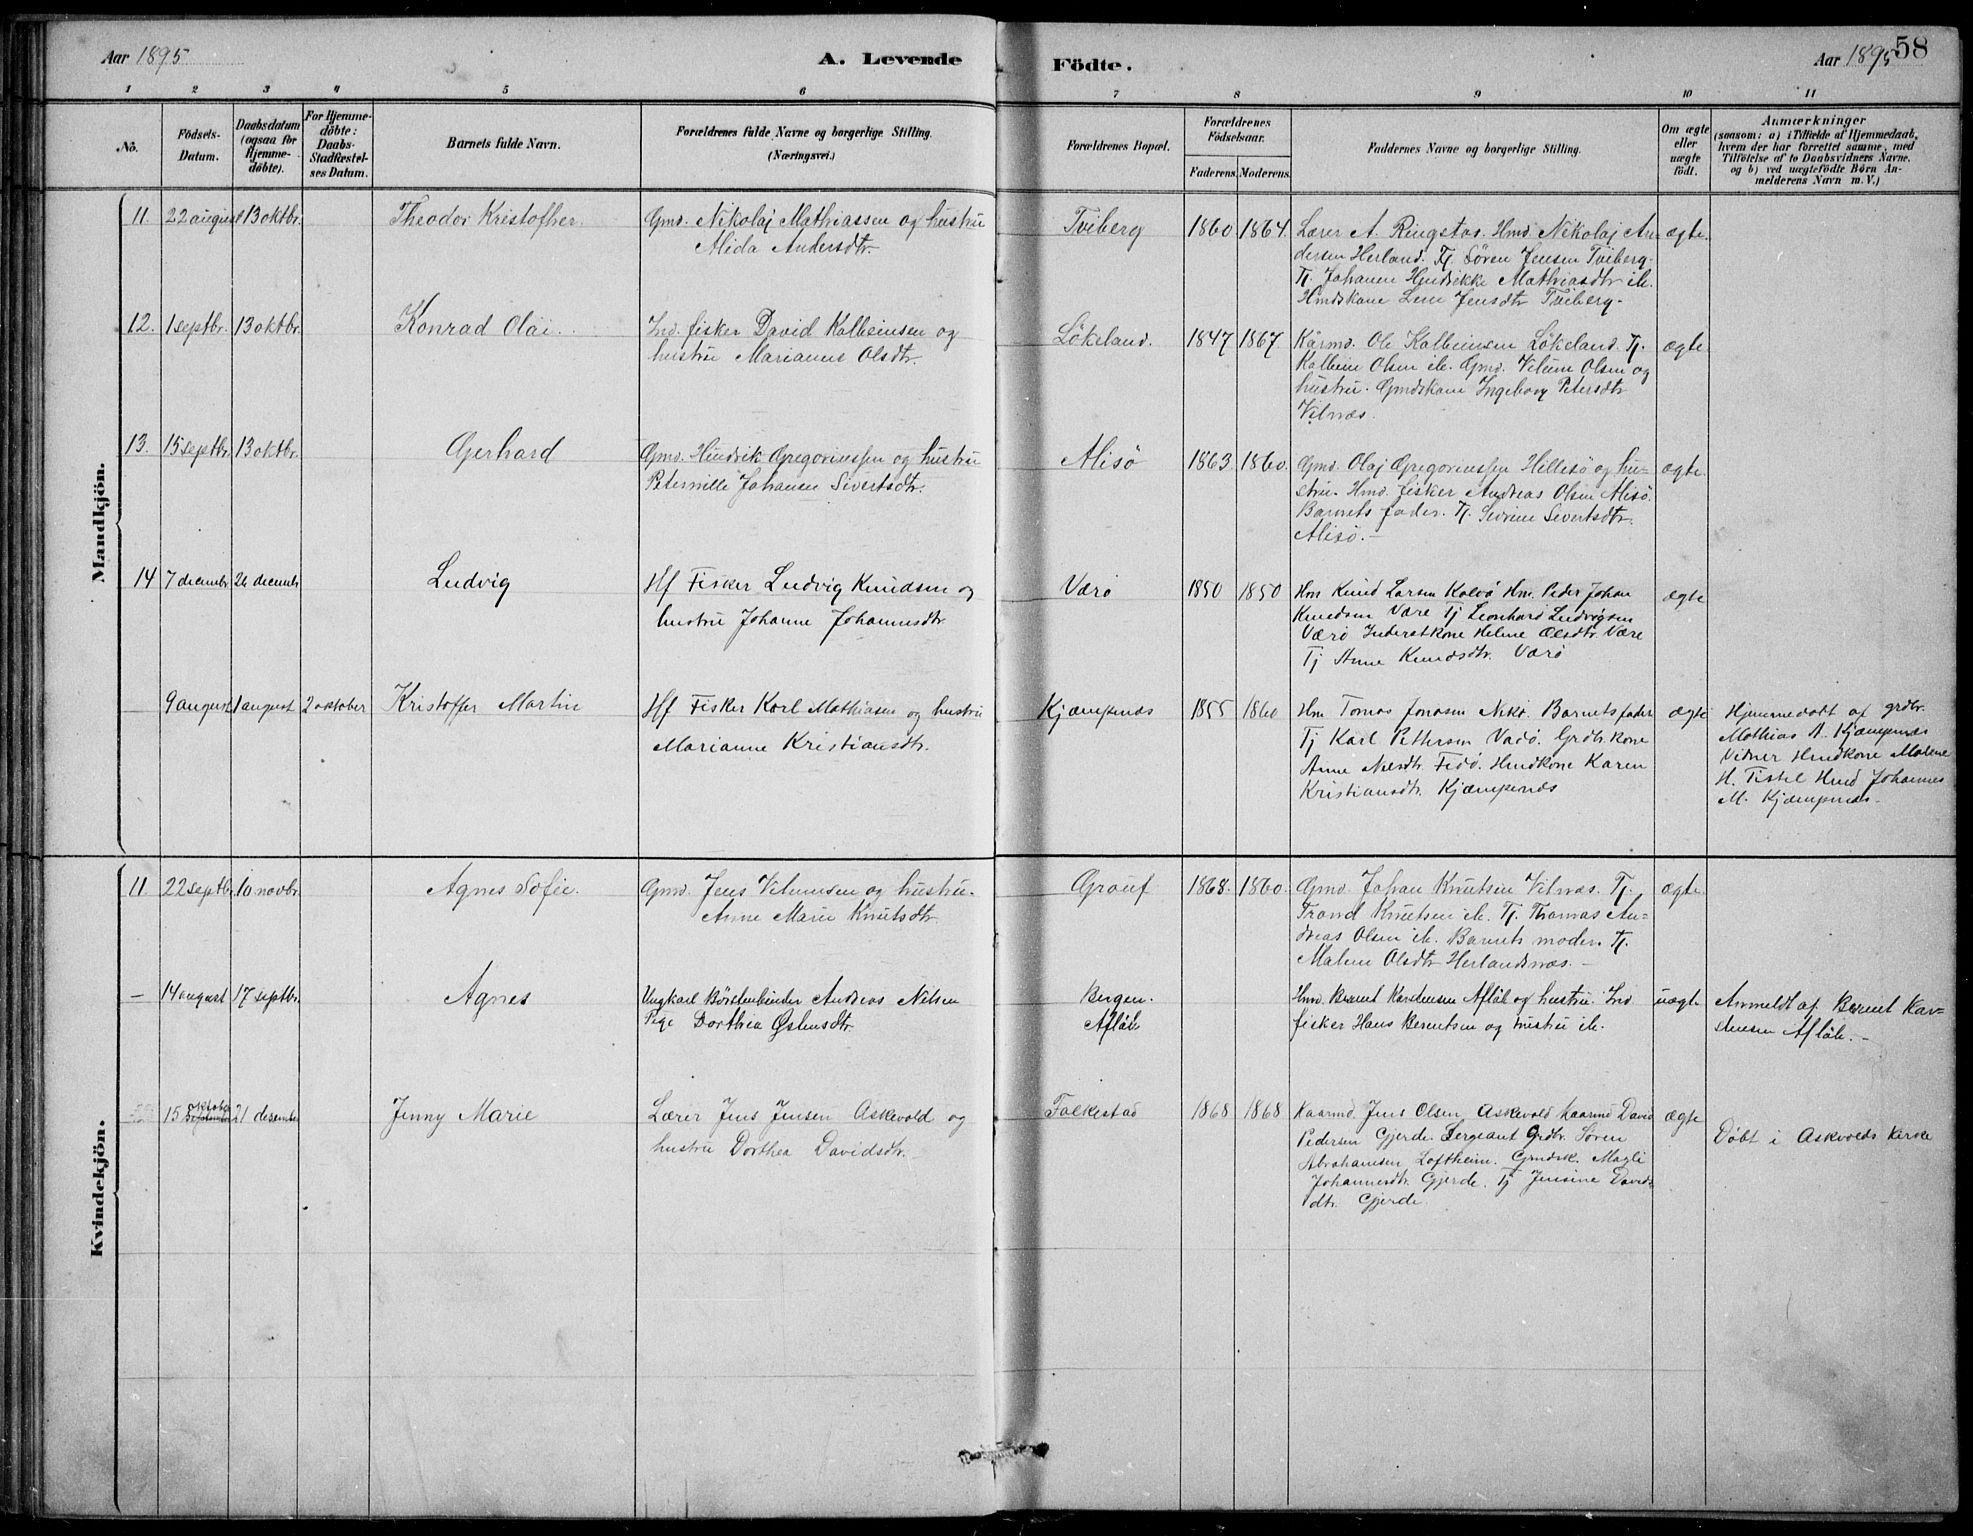 Aar 1895
A. Levende
Födte.
Aar 1895
58
1 2 3 4 5 6 7 8 9 10 11
No.
Födsels-
Datum.
Daabsdatum
(ogsaa for
Hjemme-
döbte).
For Hjemme-
döbte:
Daabs-
Stadfæstel-
ses Datum.
Barnets fulde Navn.
Forældrenes fulde Navne og borgerlige Stilling.
(Næringsvei.)
Forældrenes Bopæl.
Forældrenes
Födselsaar.
Faderens. Moderens.
Faddernes Navne og borgerlige Stilling.
Om ægte
eller
uægte
födt.
Anmærkninger
(saasom: a) i Tilfælde af Hjemmedaab,
hvem der har forrettet samme, med
Tilföielse af to Daabsvidners Navne.
og b) ved uægtefödte Börn An-
melderens Navn m. V.)
Mandkjön.
11 22 august 13 oktbr. Theodor Kristofher
Gmd. Nikolaj Mathiassen og hustru
Alida Andersdtr.
Tviberg 1860 1864.
Lærer A. Ringstas. Hmd. Nikolaj An-
dersen Herland. Tj. Sören Jensen Tviberg.
Tj. Johanne Hendrikke Mathiasdtr ib.
Hmdskone Lene Jensdtr Tviberg.
ægte.
12. 1 septbr. 13 oktbr. Konrad Olai.
Ind. fisker David Kolbeinsen og
hustru Marianne Olsdtr.
Lökeland. 1847 1867.
Kårmd. Ole Kolbeinsen Lökeland. Tj.
Kolbein Olsen ib. Gmd. Vilum Olsen og
hustru. Gmdskone Ingeborg Petersdtr
Vilnæs.
ægte
13. 15 septbr. 13 oktbr. Gerhard
Gmd. Hendrik Gregoriussen og hustru
Peternille Johanne Sivertsdtr.
Alisö 1863 1860.
Gmd. Olaj Gregoriussen Hillesö og hu-
stru. Hmd. fisker Andreas Olsen Alisö.
Barnets fader. Tj. Sivrine Sivertsdtr.
Alisö.
ægte.
14 7 decembr 26 decembr Ludvig
Hf Fisker Ludvig Knudsen og
hustru Johanne Johannesdtr.
Værö 1850 1850
Hm Knud Larsen Kalvö Hm. Peder Johan
Knudsen Være Tj Leonhard Ludvigsen
Værö Inderstkone Heline Olsdtr. Være
Tj Anne Knudsdtr. Værö
ægte
9 august 1 august 2 oktober Kristoffer Martin
Hf Fisker Karl Mathiasen og hustru
Marianne Kristiansdtr.
Kjæmpenæs 1855 1860
Hm Tomas Jonasen Nekö. Barnets fader
Tj Karl Pettersen Vadö. Grdbrkone
Anne Nilsdtr. Fedö. Hmdkone Karen
Kristiansdtr. Kjæmpenæs
ægte
Hjemmedöbt af grdbr.
Mathias A. Kjæmpenæs
Vidner Hmdkone Malene
H. Tistel Hmd Johannes
M. Kjæmpenæs.
Kvindekjön.
11 22 septbr. 10 novbr. Agnes Sofie.
Gmd. Jens Vilumsen og hustru
Anne Marie Knutsdtr.
Grouf 1868. 1860.
Gmd. Johan Knutsen Vilnæs. Tj.
Trond Knutsen ib. Tj. Thomas An-
dreas Olsen ib. Barnets moder. Tj.
Malene Olsdtr Herlandsnæs.
ægte.
— 14 august 17 septbr. Agnes
Ungkarl Börstenbinder Andreas Nilsen
Pige Dorthea Östensdtr.
Bergen.
Aflöb
Hmd. Bernt Karstensen Aflöb og hustru. Ind.
fisker Hans Berentsen og hustru ib.
uægte
Anmeldt af Bernt Kar-
stensen Aflöb.
15 oktober september 21 desember Jenny Marie
Lærer Jens Jensen Askevold og
hustru Dorthea Davidsdtr.
Folkestad 1868 1868
Kaarmd. Jens Olsen Askevold Kaarmd David
Pedersen Gjerde. Sergeant Grdbr. Sören
Abrahamsen Loftheim. Gmdsk. Magli
Johannesdtr. Gjerde. Tj Jensine Davids
dtr. Gjerde.
ægte
Döbt i Askvolds Kirke